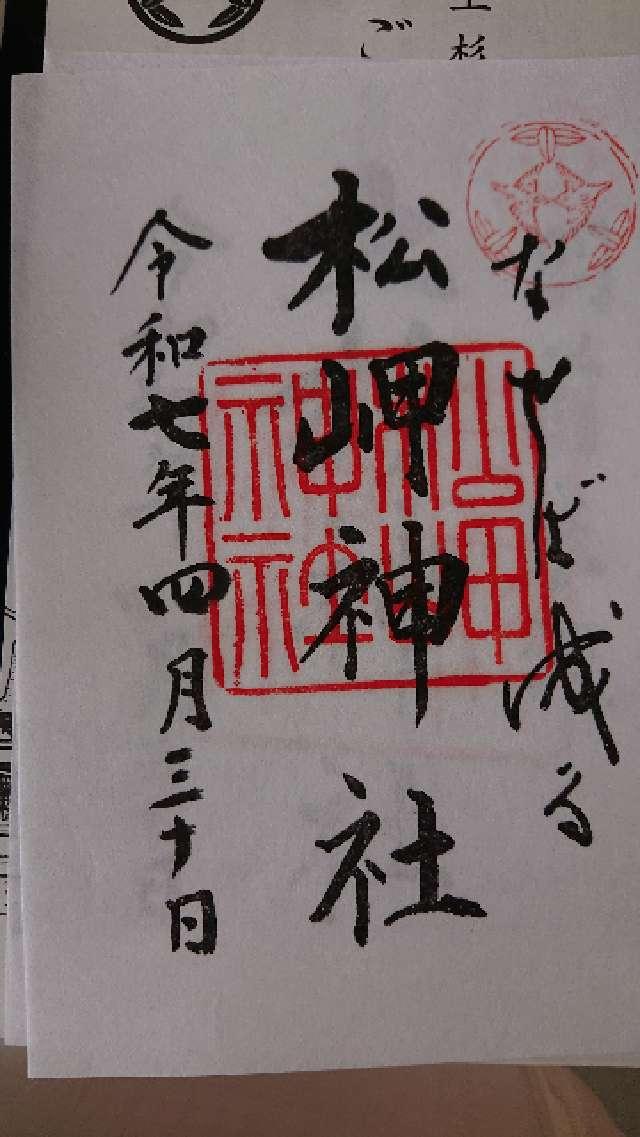 上杉
ご
なせば成る
松岬神社
松岬神社
令和七年四月三十日